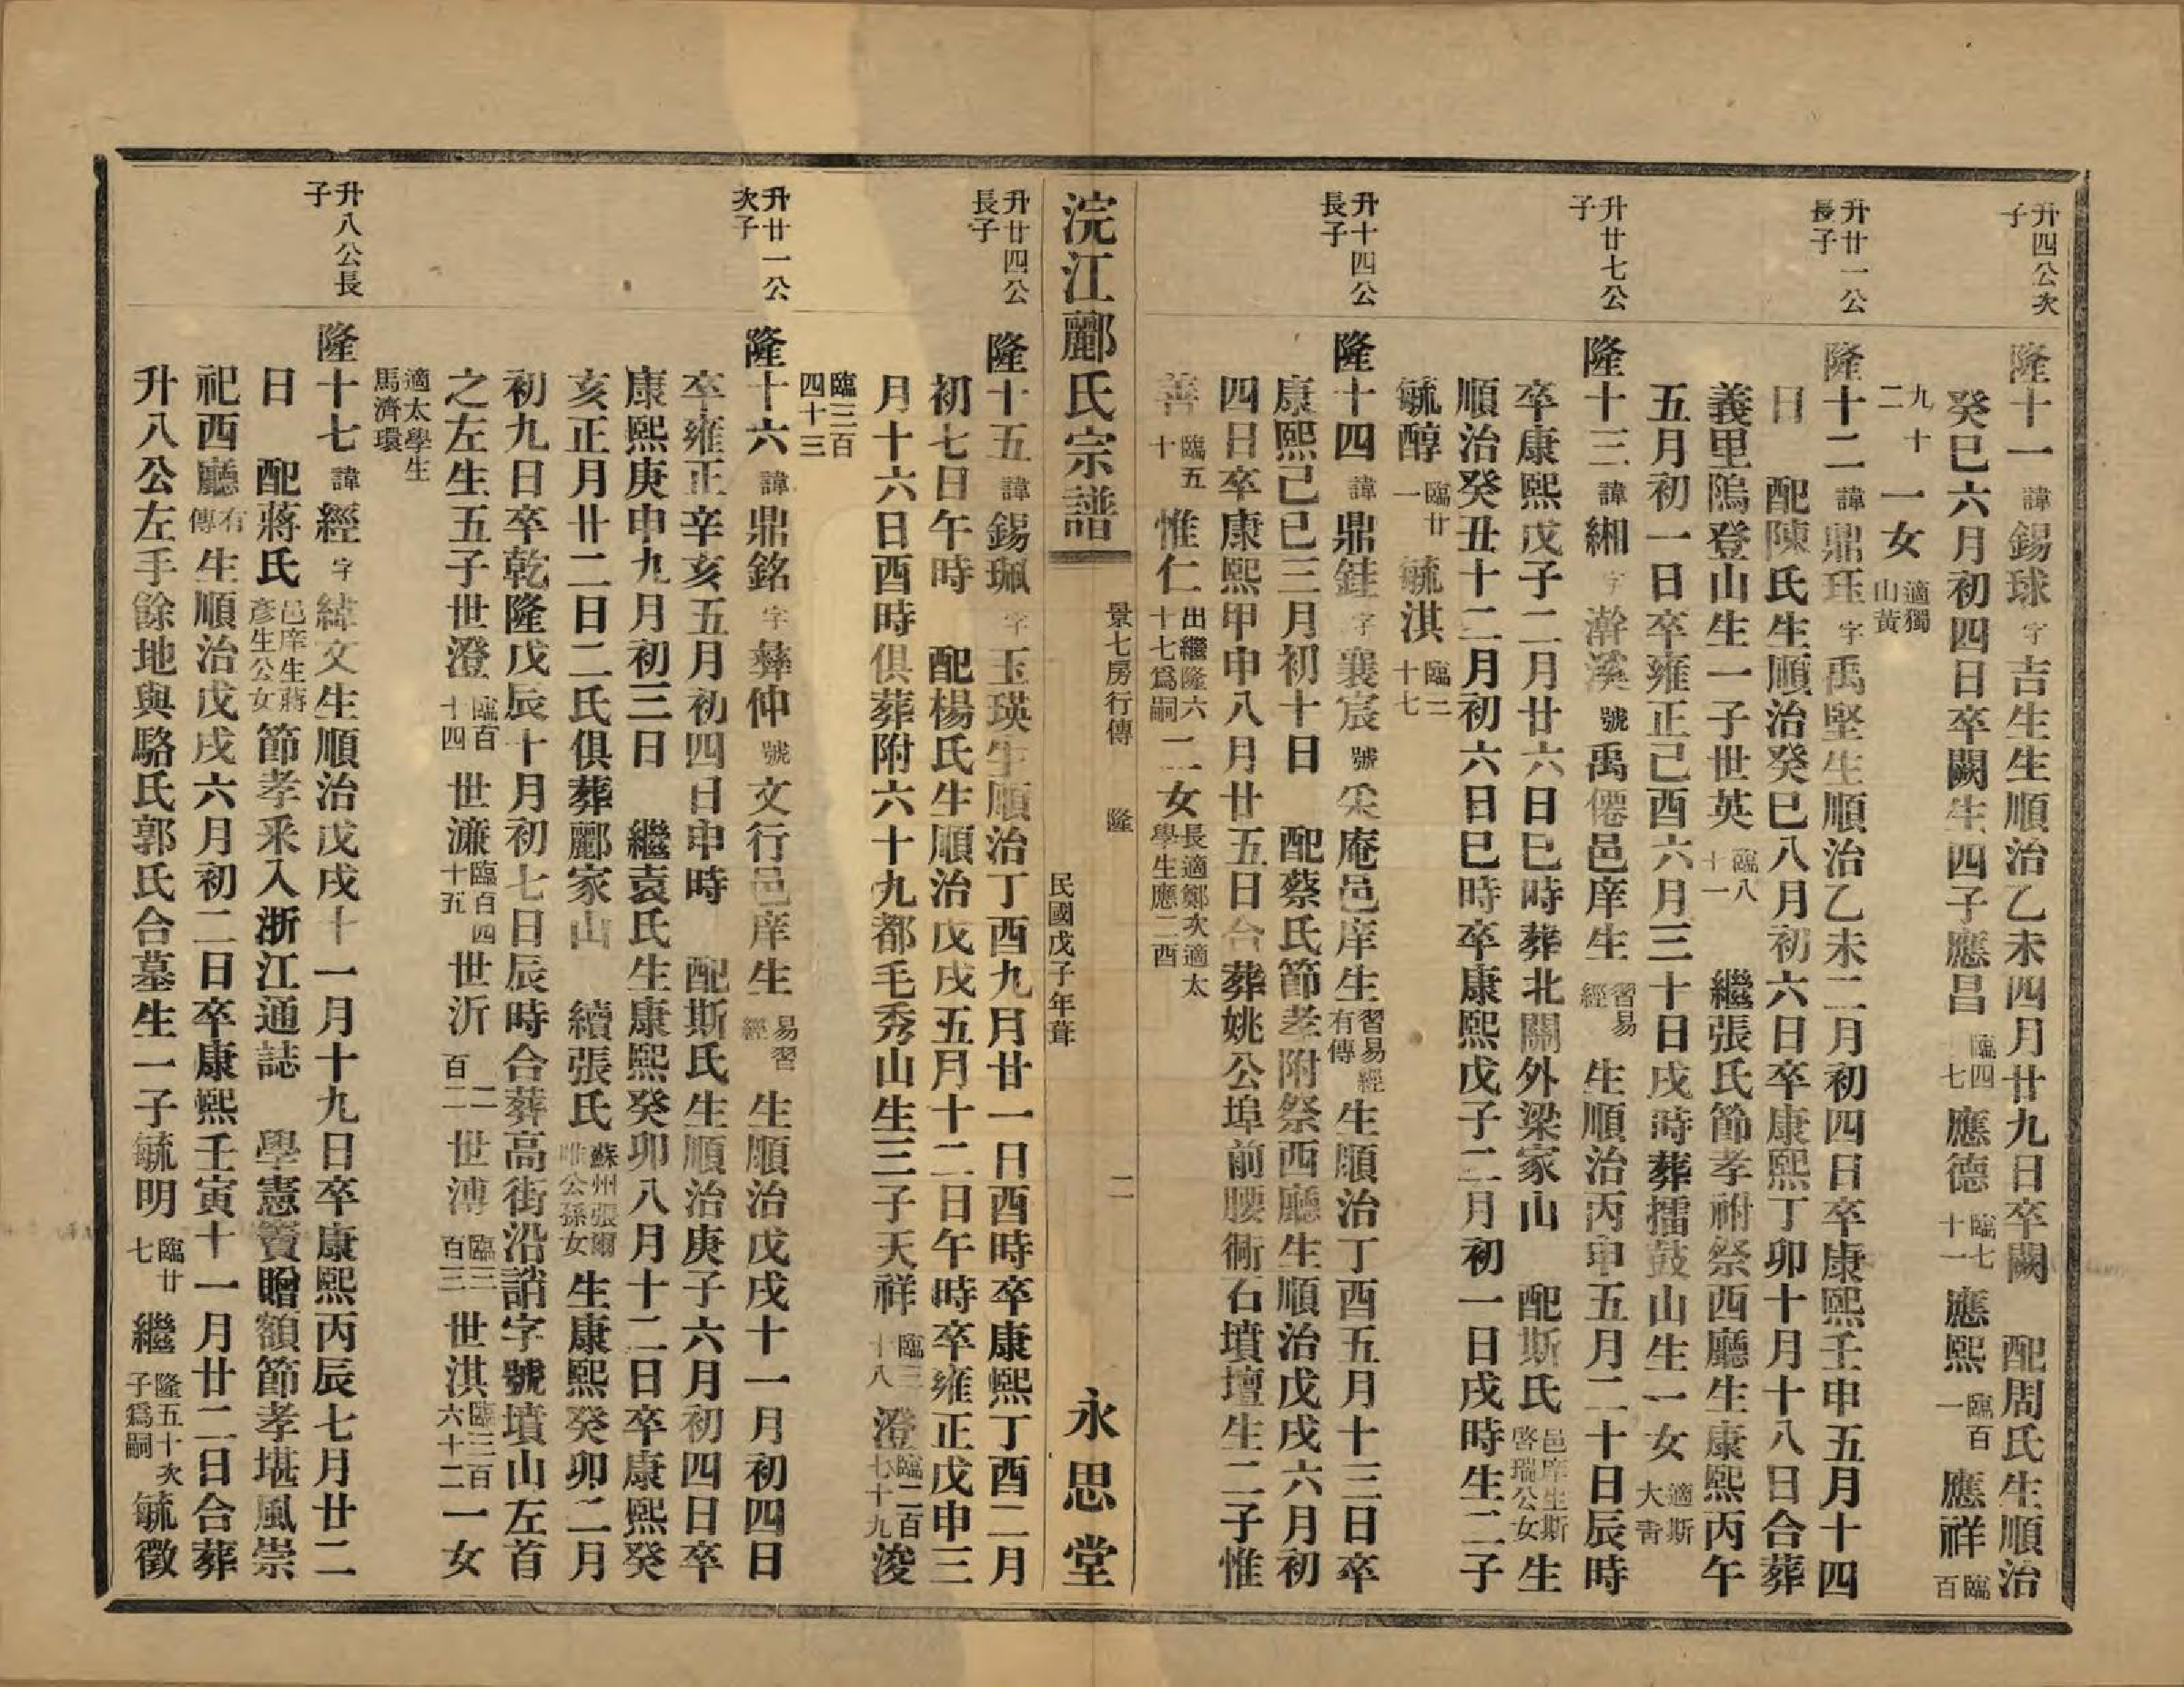 升四公次子
隆十一 諱 錫球 字 吉生生順治乙未四月廿九日卒闕 配周氏生順治
癸巳六月初四日卒闕生四子應昌 臨四七 應德 臨七十一 應熙 臨百一 應祥 臨百
九十二 一女 適獨山黃
升廿一公長子
隆十二 諱 鼎玨 字 禹堅生順治乙未二月初四日卒康熙壬申五月十四
日 配陳氏生順治癸巳八月初六日卒康熙丁卯十月十八日合葬
義里隖登山生一子世英 臨八十一 繼張氏節孝祔祭西廳生康熙丙午
五月初一日卒雍正己酉六月三十日戌時葬擂鼓山生一女 適斯大青
升廿七公子
隆十三 諱 緗 字 澣溪 號 禹僊邑庠生 習易經 生順治丙申五月二十日辰時
卒康熙戊子二月廿六日巳時葬北關外梁家山 配斯氏 邑庠生斯啓瑞公女 生
順治癸丑十二月初六日巳時卒康熙戊子二月初一日戌時生二子
毓醇 臨廿一 毓淇 臨二十七
升十四公長子
隆十四 諱 鼎銈 字 襄宸 號 采庵邑庠生 習易經有傳 生順治丁酉五月十三日卒
康熙己巳三月初十日 配蔡氏節孝附祭西廳生順治戊戌六月初
四日卒康熙甲申八月廿五日合葬姚公埠前腰衕石墳壇生二子惟
善 臨五十 惟仁 出繼隆六十七爲嗣 二女 長適鄭次適太學生應二酉
浣江酈氏宗譜 景七房行傳 隆 二 民國戊子年葺 永思堂
升廿四公長子
隆十五 諱 錫珮 字 玉瑛生順治丁酉九月廿一日酉時卒康熙丁酉二月
初七日午時 配楊氏生順治戊戌五月十二日午時卒雍正戊申三
月十六日酉時俱葬附六十九都毛秀山生三子天祥 臨三十八 澄 臨二百七十九 浚
臨三百四十三
升廿一公次子
隆十六 諱 鼎銘 字 彝仲 號 文行邑庠生 易習經 生順治戊戌十一月初四日
卒雍正辛亥五月初四日申時 配斯氏生順治庚子六月初四日卒
康熙庚申九月初三日 繼袁氏生康熙癸卯八月十二日卒康熙癸
亥正月廿二日二氏俱葬酈家山 續張氏 蘇州張爾唯公孫女 生康熙癸卯二月
初九日卒乾隆戊辰十月初七日辰時合葬高街沿誚字號墳山左首
之左生五子世澄 臨百十四 世濂 臨百四十五 世沂 二百二 世溥 臨三百三 世淇 臨三百六十二 一女
適太學生馬濟環
升八公長子
隆十七 諱 經 字 緯文生順治戊戌十一月十九日卒康熙丙辰七月廿二
日 配蔣氏 邑庠生蔣彥生公女 節孝釆入浙江通誌 學憲竇贈額節孝堪風崇
祀西廳 有傳 生順治戊戌六月初二日卒康熙壬寅十一月廿二日合葬
升八公左手餘地與駱氏郭氏合墓生一子毓明 臨廿七 繼 隆五十次子爲嗣 毓徵